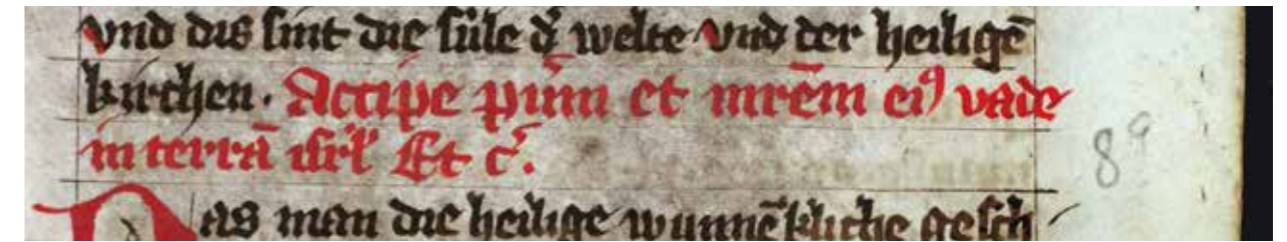 vnd dis sint die sûle d̾ welte vnd der heiligē
kirchen · Accipe pūm et mrēm ei⁹ vade
in terrā isrl̄ Et c̾.
Das man die heilige wunnēkliche gesch
8ᵃ